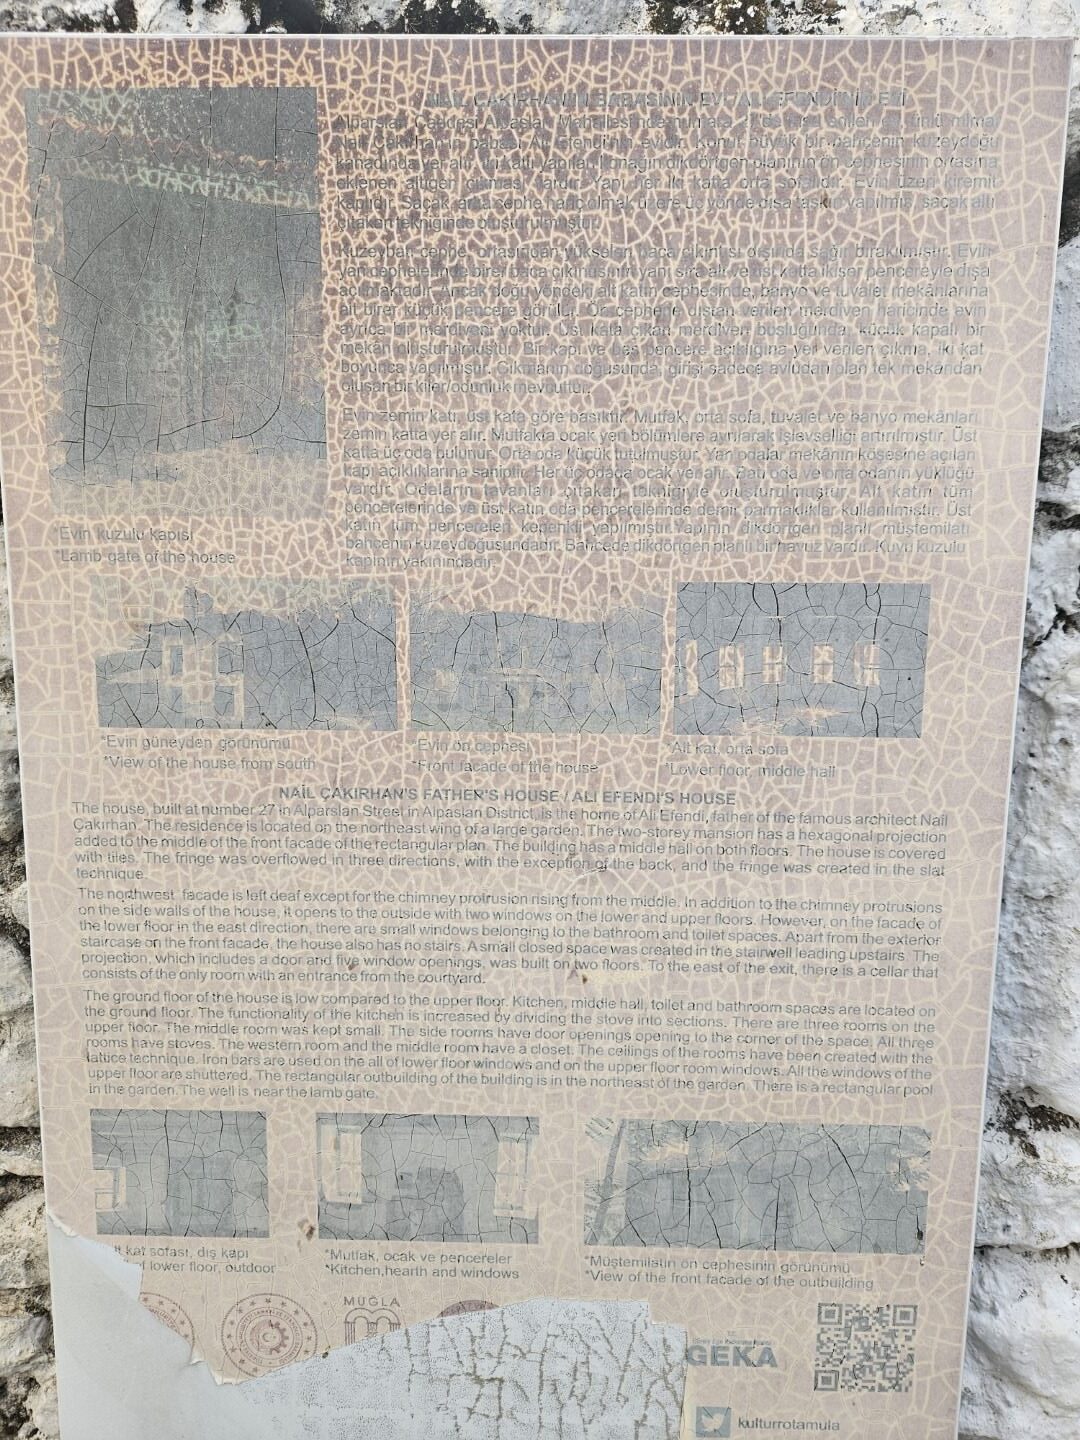 NAİL ÇAKIRHAN'IN BABASININ EVİ / ALİ EFENDİ'NİN EVİ
Alparslan Caddesi Alpaslan Mahallesi'nde numara 27'de inşa edilen ev, ünlü mimar
Nail Çakırhan'ın babası Ali Efendi'nin evidir. Konut büyük bir bahçenin kuzeydoğu
kanadında yer alır. İki katlı yapılan konağın dikdörtgen planının ön cephesinin ortasına
eklenen altıgen çıkması vardır. Yapı her iki katta orta sofalıdır. Evin üzeri kiremit
kaplıdır. Saçak, arka cephe hariç olmak üzere üç yönde dışa taşkın yapılmış, saçak altı
çıtakari tekniğinde oluşturulmuştur.
Kuzeybatı cephe, ortasından yükselen baca çıkıntısı dışında sağır bırakılmıştır. Evin
yan cephelerinde birer baca çıkıntısının yanı sıra alt ve üst katta ikişer pencereyle dışa
açılmaktadır. Ancak doğu yöndeki alt katın cephesinde, banyo ve tuvalet mekânlarına
ait birer küçük pencere görülür. Ön cephede dıştan verilen merdiven haricinde evin
ayrıca bir merdiveni yoktur. Üst kata çıkan merdiven boşluğunda, küçük kapalı bir
mekân oluşturulmuştur. Bir kapı ve beş pencere açıklığına yer verilen çıkma, iki kat
boyunca yapılmıştır. Çıkmanın doğusunda, girişi sadece avludan olan tek mekandan
oluşan bir kiler/odunluk mevcuttur.
Evin zemin katı, üst kata göre basıktır. Mutfak, orta sofa, tuvalet ve banyo mekânları
zemin katta yer alır. Mutfakta ocak yeri bölümlere ayrılarak işlevselliği artırılmıştır. Üst
katta üç oda bulunur. Orta oda küçük tutulmuştur. Yan odalar mekânın köşesine açılan
kapı açıklıklarına sahiptir. Her üç odada ocak yer alır. Batı oda ve orta odanın yüklüğü
vardır. Odaların tavanları çıtakari tekniğiyle oluşturulmuştur. Alt katın tüm
pencerelerinde ve üst katın oda pencerelerinde demir parmaklıklar kullanılmıştır. Üst
katın tüm pencereleri kepenkli yapılmıştır.Yapının dikdörtgen planlı müştemilatı
bahçenin kuzeydoğusundadır. Bahçede dikdörtgen planlı bir havuz vardır. Kuyu kuzulu
kapının yakınındadır.
*Evin kuzulu kapısı
*Lamb gate of the house
*Evin güneyden görünümü
*View of the house from south
*Evin ön cephesi
*Front facade of the house
*Alt kat, orta sofa
*Lower floor, middle hall
NAİL ÇAKIRHAN'S FATHER'S HOUSE / ALI EFENDI'S HOUSE
The house, built at number 27 in Alparslan Street in Alpaslan District, is the home of Ali Efendi, father of the famous architect Nail
Çakırhan. The residence is located on the northeast wing of a large garden. The two-storey mansion has a hexagonal projection
added to the middle of the front facade of the rectangular plan. The building has a middle hall on both floors. The house is covered
with tiles. The fringe was overflowed in three directions, with the exception of the back, and the fringe was created in the slat
technique.
The northwest facade is left deaf except for the chimney protrusion rising from the middle. In addition to the chimney protrusions
on the side walls of the house, it opens to the outside with two windows on the lower and upper floors. However, on the facade of
the lower floor in the east direction, there are small windows belonging to the bathroom and toilet spaces. Apart from the exterior
staircase on the front facade, the house also has no stairs. A small closed space was created in the stairwell leading upstairs. The
projection, which includes a door and five window openings, was built on two floors. To the east of the exit, there is a cellar that
consists of the only room with an entrance from the courtyard.
The ground floor of the house is low compared to the upper floor. Kitchen, middle hall, toilet and bathroom spaces are located on
the ground floor. The functionality of the kitchen is increased by dividing the stove into sections. There are three rooms on the
upper floor. The middle room was kept small. The side rooms have door openings opening to the corner of the space. All three
rooms have stoves. The western room and the middle room have a closet. The ceilings of the rooms have been created with the
lattice technique. Iron bars are used on the all of lower floor windows and on the upper floor room windows. All the windows of the
upper floor are shuttered. The rectangular outbuilding of the building is in the northeast of the garden. There is a rectangular pool
in the garden. The well is near the lamb gate.
kat sofası, dış kapı
of lower floor, outdoor
*Mutfak, ocak ve pencereler
*Kitchen,hearth and windows
*Müştemilatın ön cephesinin görünümü
*View of the front facade of the outbuilding
MUĞLA
GEKA
kulturrotamula